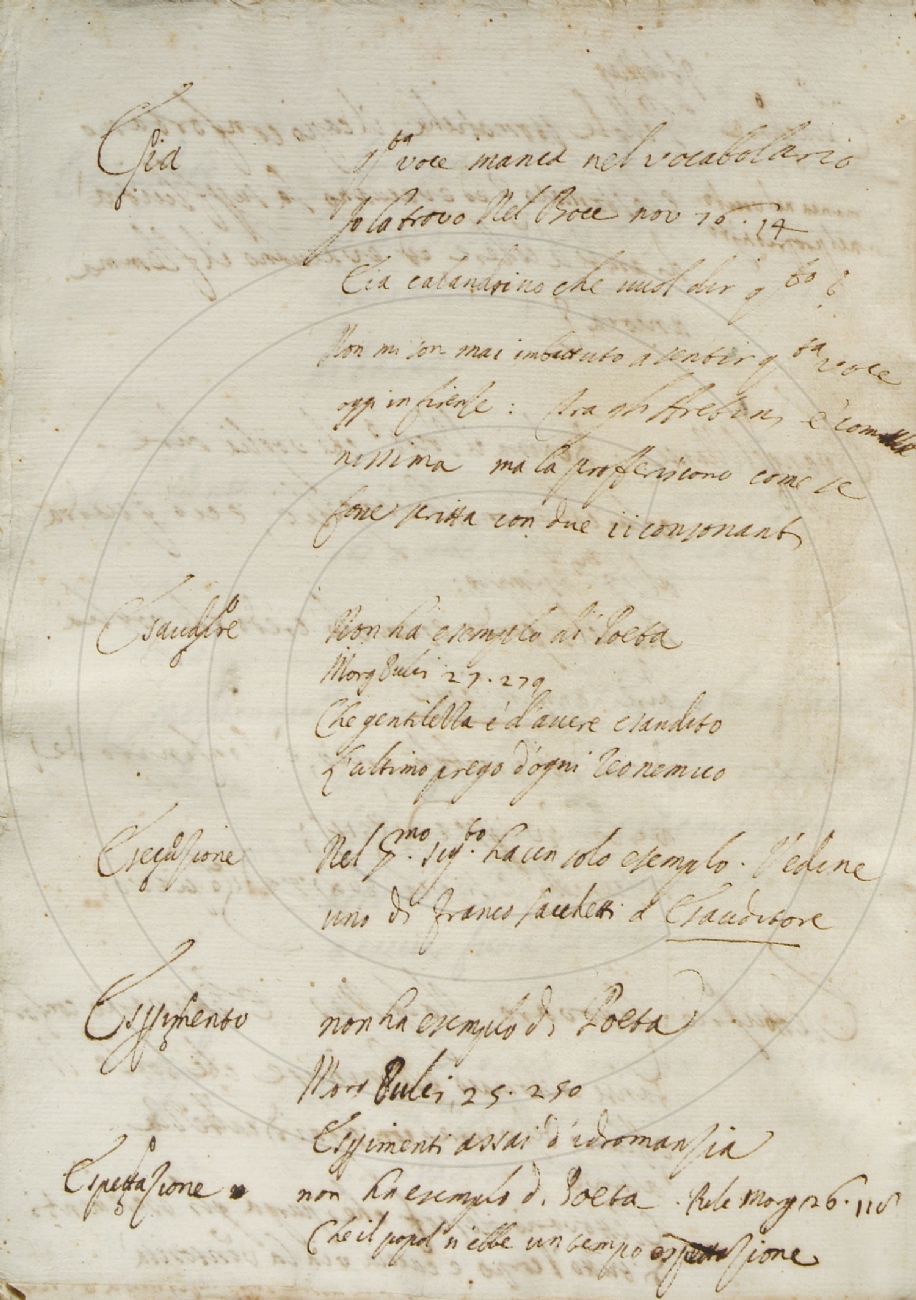 Eia
q.ta voce manca nel vocabollario
Jo la trovo Nel Bocc nov 76. 14
Eia calandrino che vuol dir q.to
Non mi son mai imbattuto a sentir q.ta voce
oggi in firenze: fra gli Aretini è com
nissima ma la profferiscono come se
fosse scritta con due ii consonanti
Esaudire
Non ha esempio di Poeta
Morg Pulci 27. 279
Che gentilezza è d'avere esaudito
L'ultimo prego d'ogni
Esecuzione
Nel P.mo sig.to ha un solo esempio. Vedine
uno di Franco Sacchetti a Esauditore
non ha esempio di Poeta
Morg Pulci 25. 250
assai d'idromanzia
Espettazione
non ha esempio di Poeta. Morg 26. 118
Che il popol n'ebbe un tempo espettazione